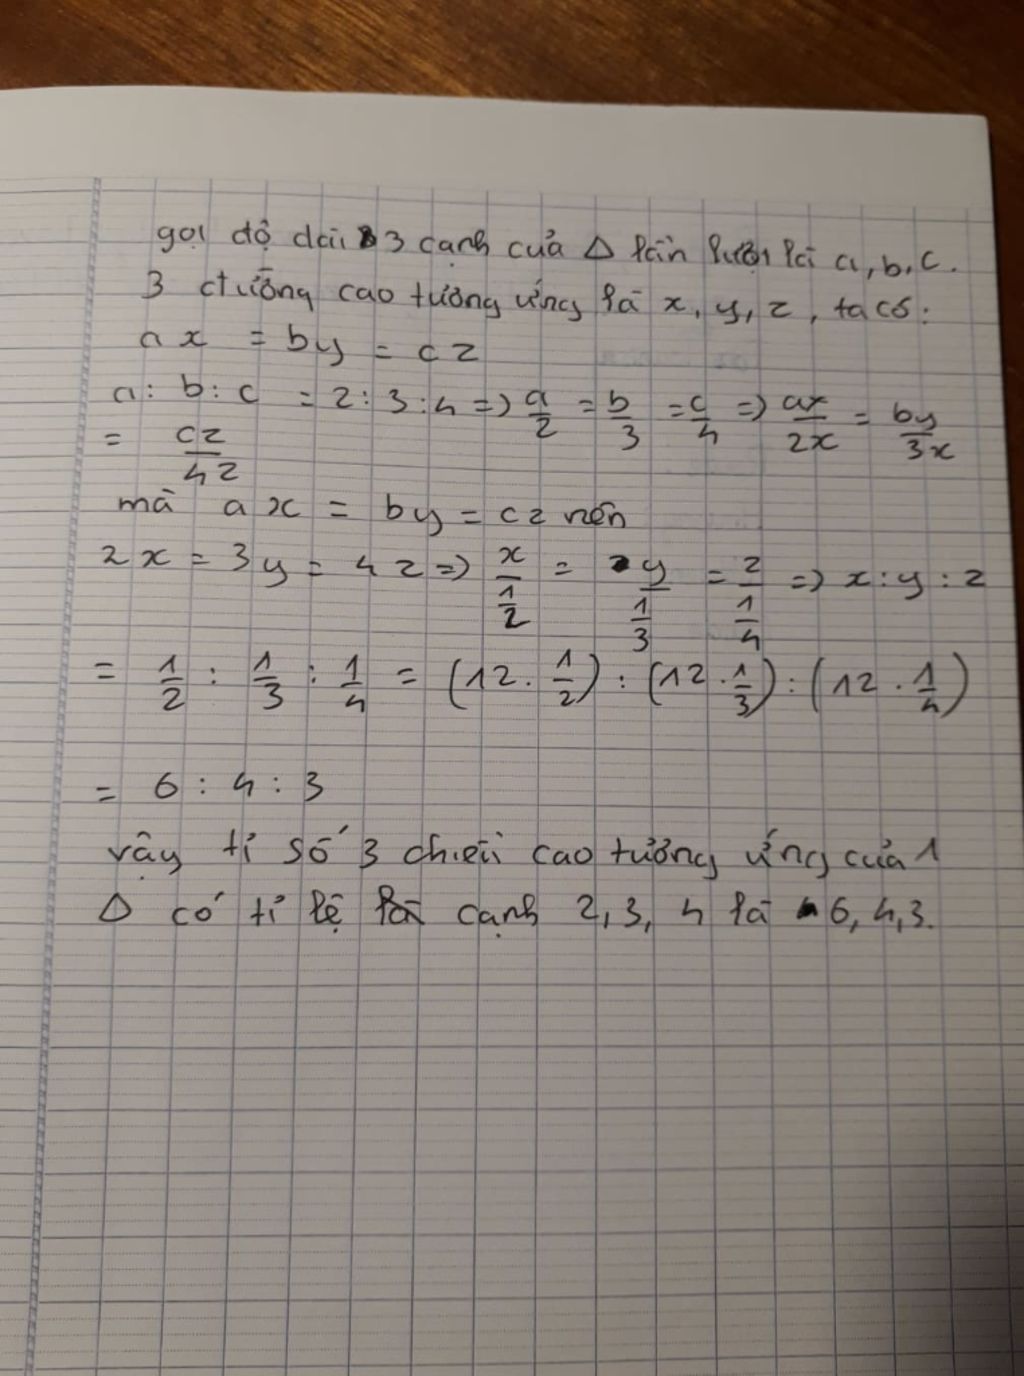 gọi độ dài 3 cạnh của Δ lần lượt là a, b, c.
3 đường cao tương ứng là x, y, z, ta có:
ax = by = cz
a : b : c = 2 : 3 : 4 => a/2 = b/3 = c/4 => ax/2x = by/3x
= cz/4z
mà ax = by = cz nên
2x = 3y = 4z => x/(1/2) = y/(1/3) = z/(1/4) => x : y : z
= 1/2 : 1/3 : 1/4 = (12 . 1/2) : (12 . 1/3) : (12 . 1/4)
= 6 : 4 : 3
vậy tỉ số 3 chiều cao tương ứng của 1
Δ có tỉ lệ là cạnh 2, 3, 4 là 6, 4, 3.